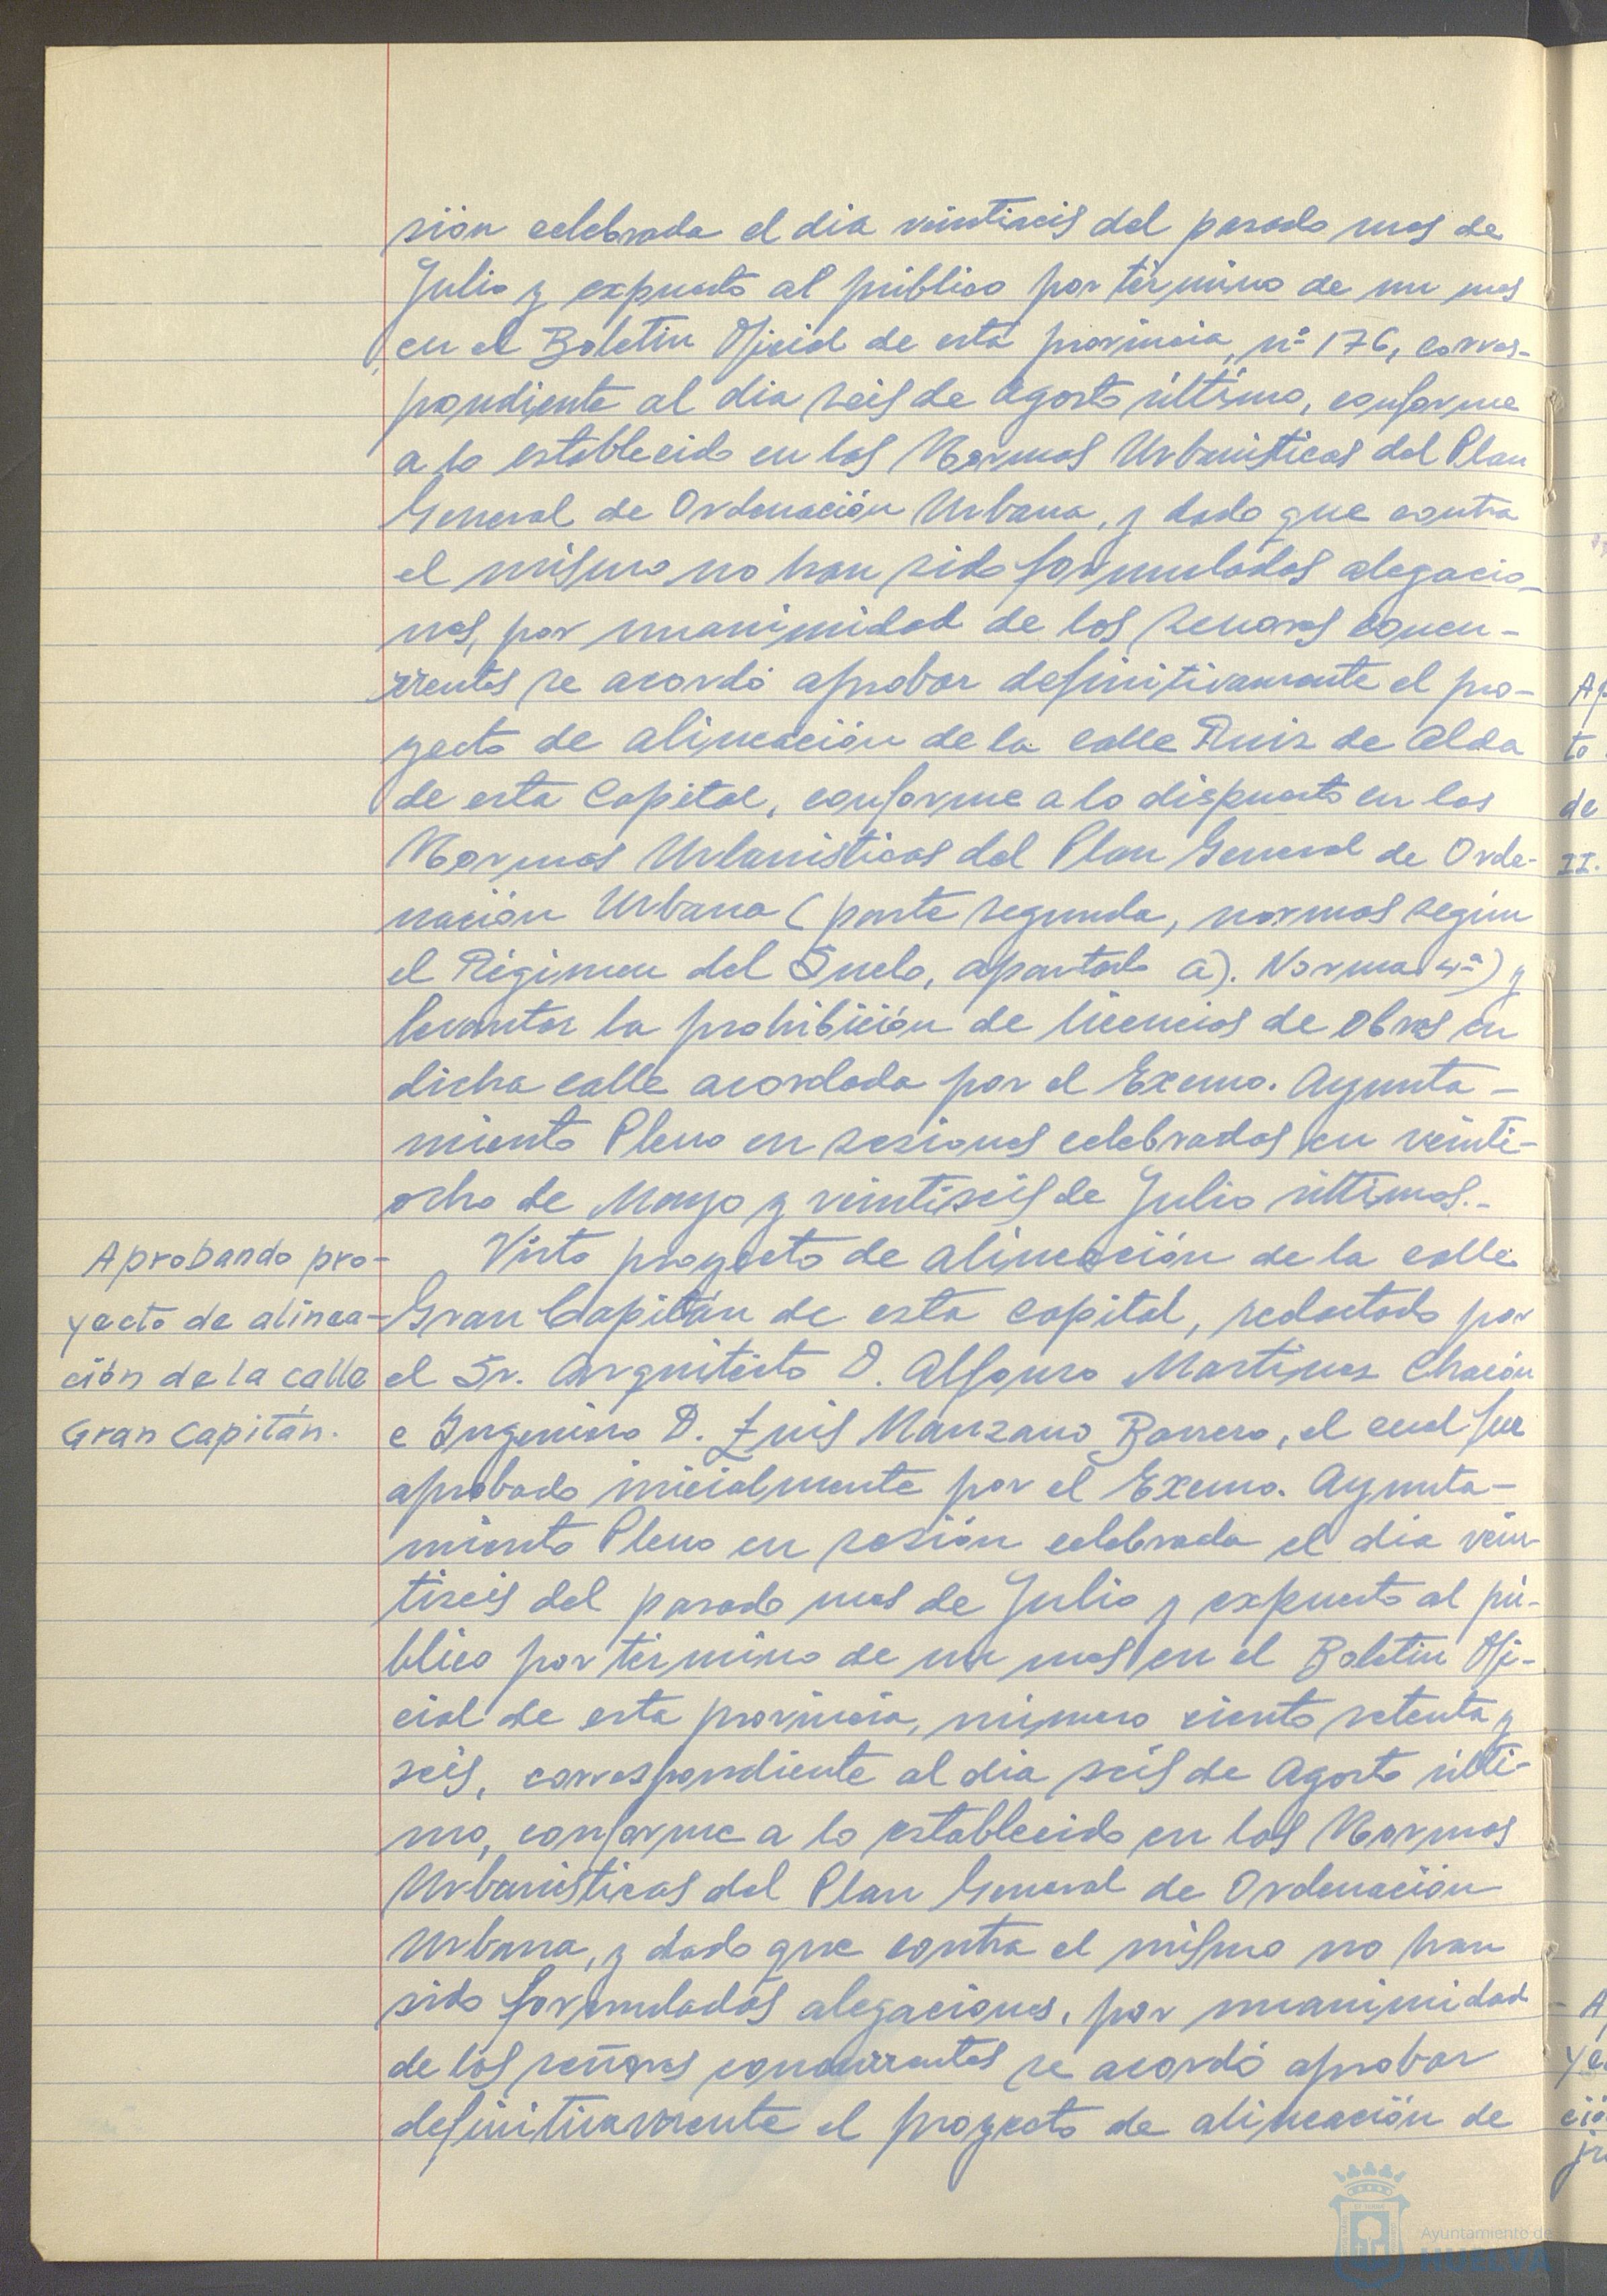 sión celebrada el dia veintiseis del pasado mes de
Julio y expuesto al público por término de un mes
en el Boletin Oficial de esta provincia, nº 176, corres-
pondiente al dia seis de Agosto último, conforme
a lo establecido en las Normas Urbanisticas del Plan
General de Ordenación Urbana, y dado que contra
el mismo no han sido formuladas alegacio-
nes, por unanimidad de los señores concu-
rrentes se acordó aprobar definitivamente el pro-
yecto de alineación de la calle Ruiz de Alda
de esta Capital, conforme a lo dispuesto en las
Normas Urbanisticas del Plan General de Orde-
nación Urbana (parte segunda, normas según
el Régimen del Suelo, apartado a). Norma 4ª) y
levantar la prohibición de licencias de obras en
dicha calle acordada por el Excmo. Ayunta-
miento Pleno en sesiones celebradas en veinti-
ocho de Mayo y veintiseis de Julio últimos.-
Aprobando pro-
yecto de alinea-
ción de la calle
Gran Capitán.
Visto proyecto de alineación de la calle
Gran Capitán de esta capital, redactado por
el Sr. Arquitecto D. Alfonso Martinez Chacón
e Ingeniero D. Luis Manzano Barrero, el cual fue
aprobado inicialmente por el Excmo. Ayunta-
miento Pleno en sesión celebrada el dia vein-
tiseis del pasado mes de Julio y expuesto al pú-
blico por término de un mes en el Boletin Ofi-
cial de esta provincia, número ciento setenta y
seis, correspondiente al dia seis de Agosto últi-
mo, conforme a lo establecido en las Normas
Urbanisticas del Plan General de Ordenación
Urbana, y dado que contra el mismo no han
sido formuladas alegaciones, por unanimidad
de los señores concurrentes se acordó aprobar
definitivamente el proyecto de alineación de
Ayuntamiento de
HUELVA